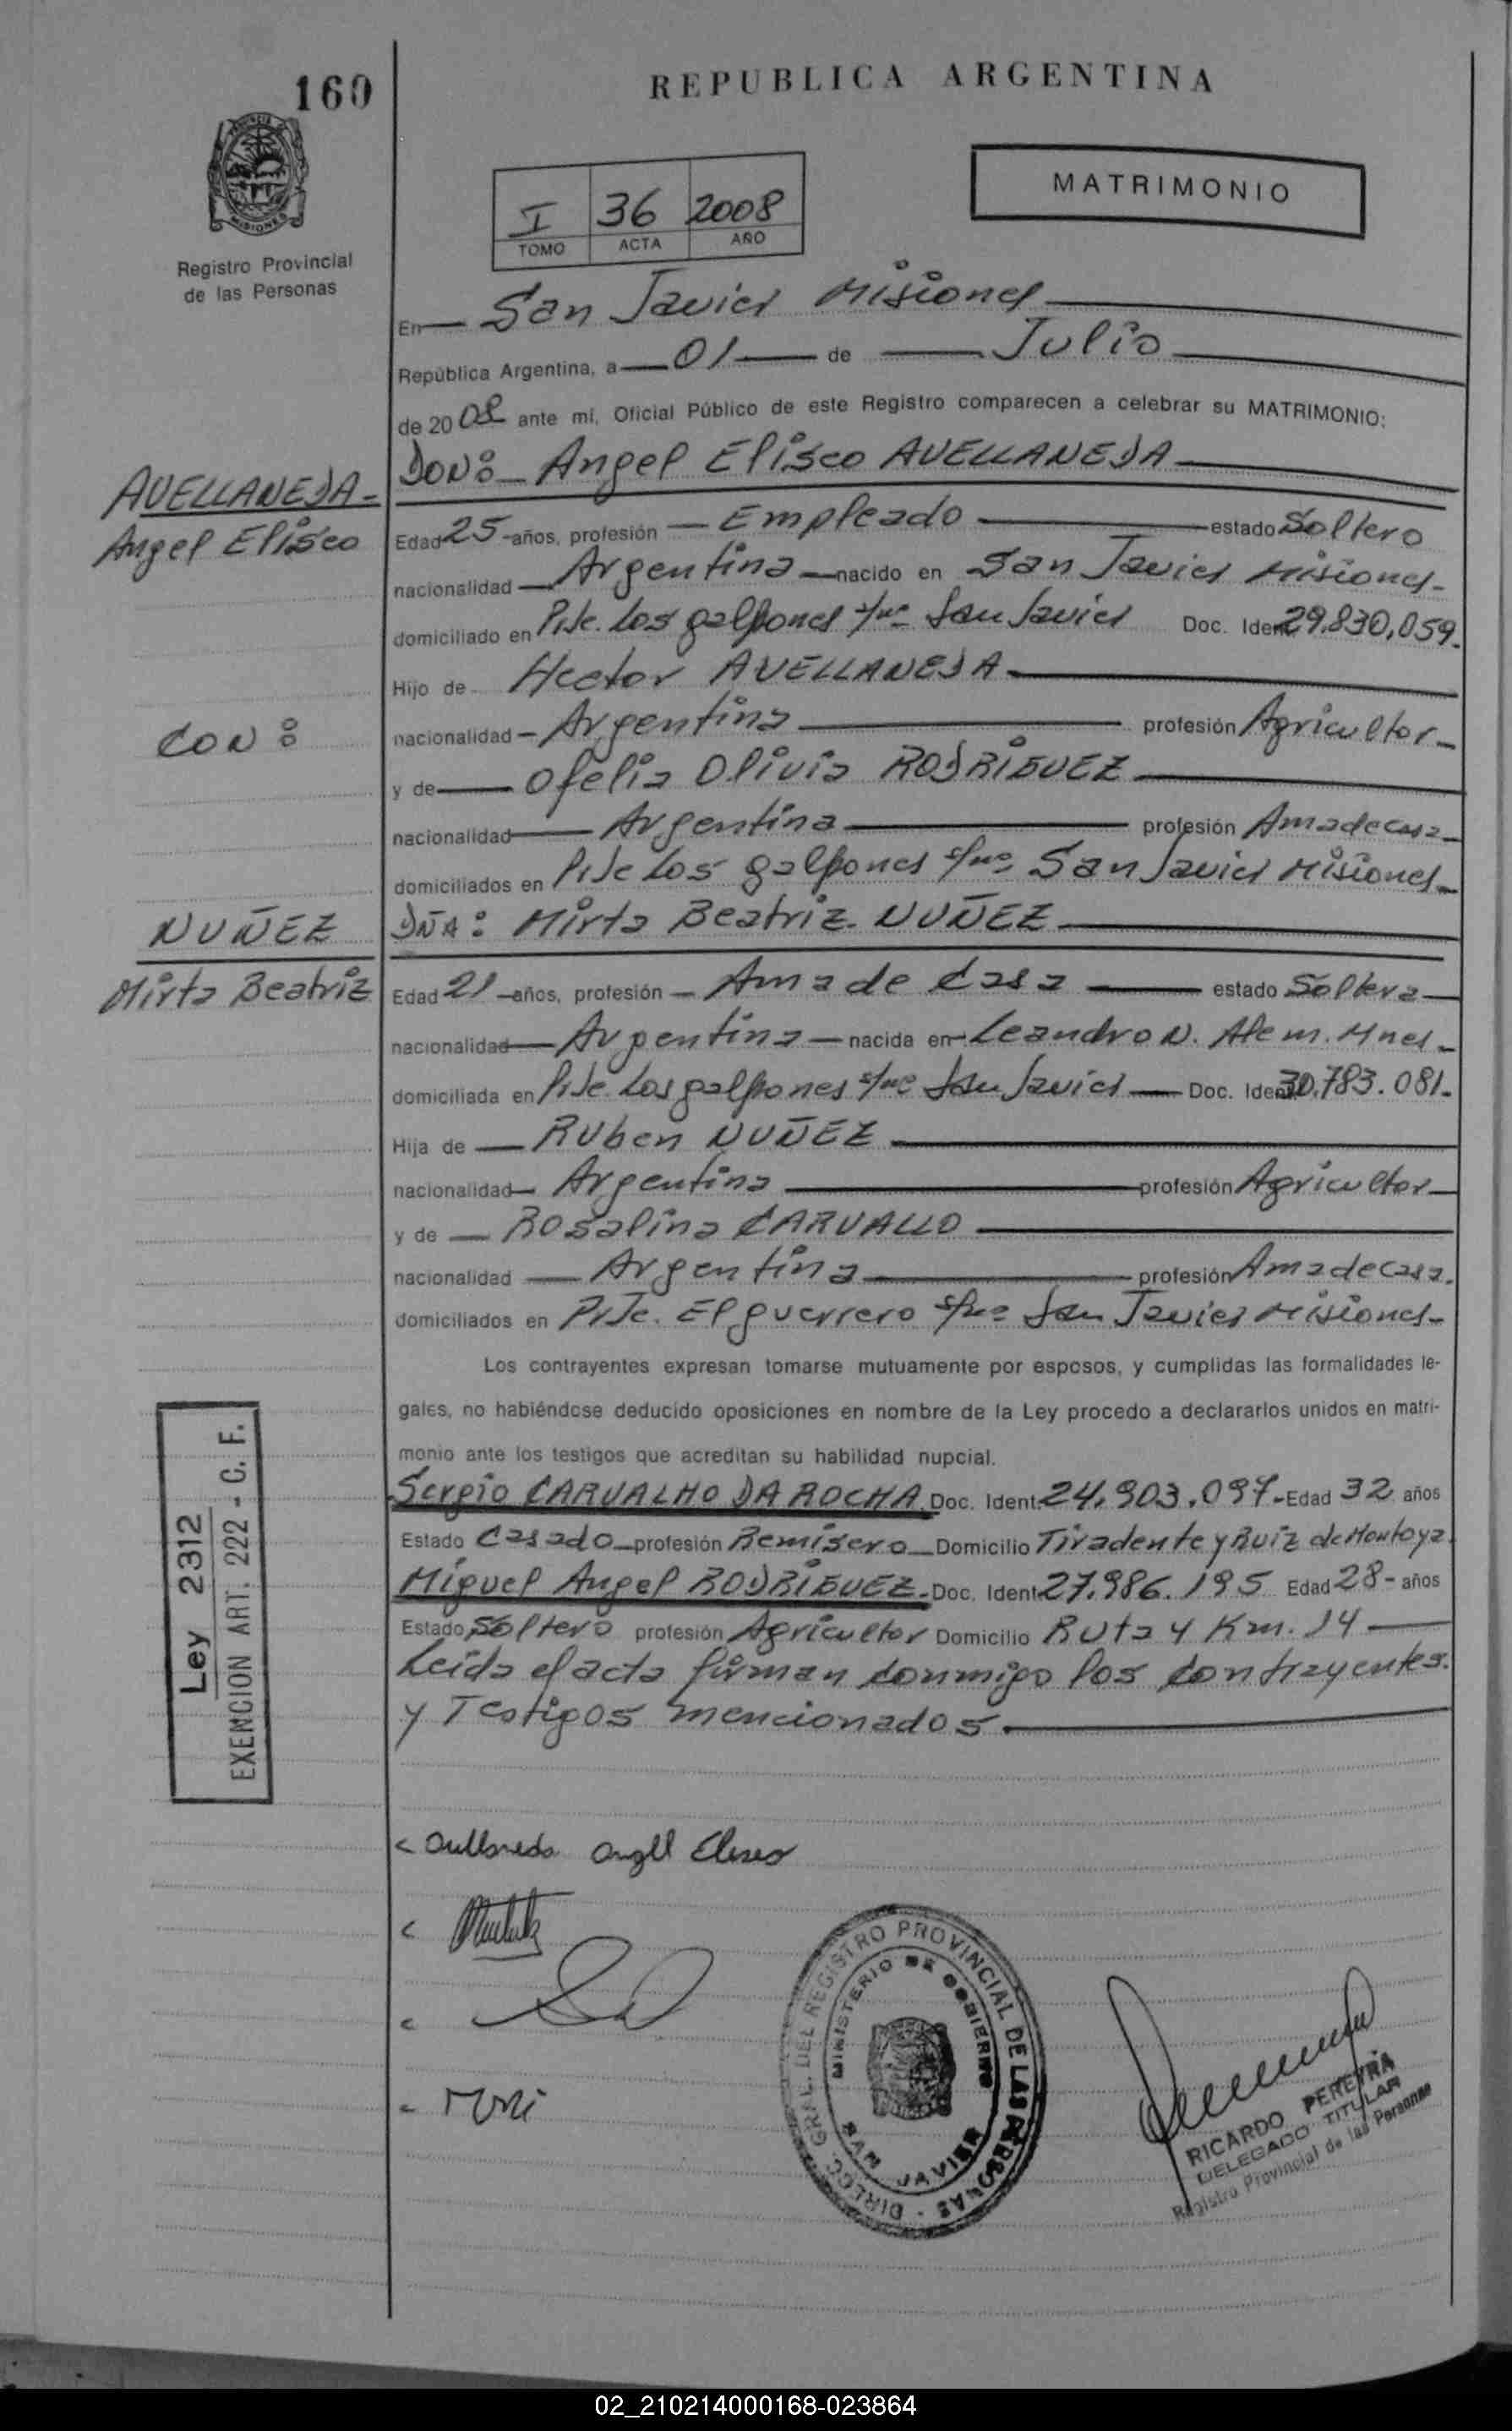 160
REPUBLICA ARGENTINA
MATRIMONIO
I 36 2008
TOMO ACTA AÑO
PROVINCIA DE
MISIONES
Registro Provincial
de las Personas
En San Javier Misiones
República Argentina, a 01 de Julio
de 2008 ante mí, Oficial Público de este Registro comparecen a celebrar su MATRIMONIO:
DON: Angel Eliseo AVELLANEDA
AVELLANEDA-
Angel Eliseo
Edad 25 años, profesión Empleado estado Soltero
nacionalidad Argentina nacido en San Javier Misiones-
domiciliado en Pje. Los galpones s/nº San Javier Doc. Ident. 29.830.059.
Hijo de Hector AVELLANEDA
CON:
nacionalidad Argentina profesión Agricultor
y de Ofelia Olivia RODRIGUEZ
nacionalidad Argentina profesión Ama de casa
domiciliados en Pje Los galpones s/nº San Javier Misiones
NUÑEZ
Mirta Beatriz
DÑA: Mirta Beatriz NUÑEZ
Edad 21 años, profesión Ama de Casa estado Soltera
nacionalidad Argentina nacida en Leandro N. Alem. Mnes.
domiciliada en Pje. Los galpones s/nº San Javier Doc. Ident. 30.783.081.
Hija de Ruben NUÑEZ
nacionalidad Argentina profesión Agricultor
y de Rosalina CARVALLO
nacionalidad Argentina profesión Ama de casa.
domiciliados en Pje. El guerrero s/nº San Javier Misiones-
Los contrayentes expresan tomarse mutuamente por esposos, y cumplidas las formalidades le-
gales, no habiéndose deducido oposiciones en nombre de la Ley procedo a declararlos unidos en matri-
monio ante los testigos que acreditan su habilidad nupcial.
Ley 2312
EXENCION ART. 222 - C. F.
Sergio CARVALHO DA ROCHA. Doc. Ident. 24.903.097- Edad 32 años
Estado Casado profesión Remisero Domicilio Tiradente y Ruiz de Montoya.
Miguel Angel RODRIGUEZ. Doc. Ident. 27.986.195 Edad 28- años
Estado Soltero profesión Agricultor Domicilio Ruta 4 Km. 14
Leida el acta firman conmigo los contrayentes.
y Testigos mencionados.
DIRECC. GRAL. DEL REGISTRO PROVINCIAL DE LAS PERSONAS -
MINISTERIO DE GOBIERNO
SAN JAVIER
RICARDO PEREYRA
DELEGADO TITULAR
Registro Provincial de las Personas
02_210214000168-023864